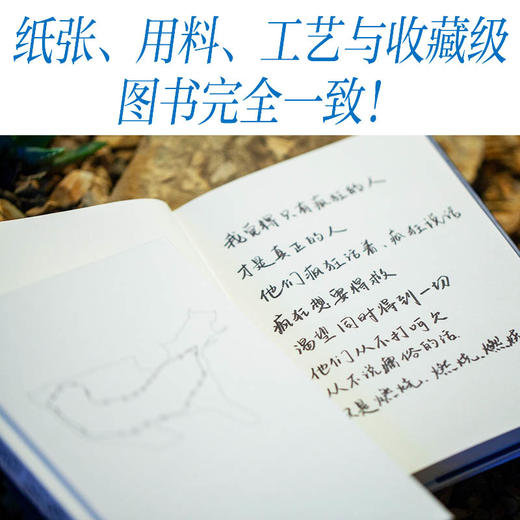 纸张、用料、工艺与收藏级
图书完全一致！
我觉得只有疯狂的人
才是真正的人
他们疯狂活着、疯狂说话
疯狂想要得救
渴望同时得到一切
他们从不打呵欠
从不说庸俗的话
只是燃烧、燃烧、燃烧